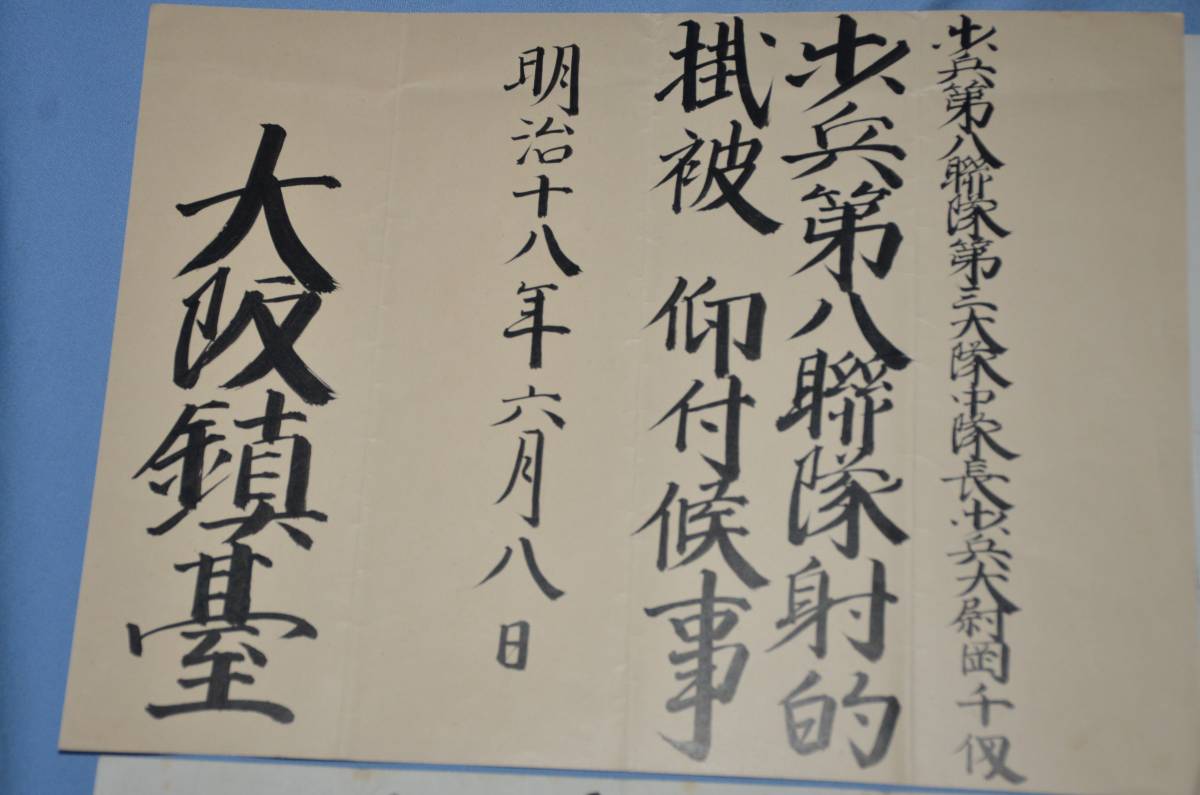 歩兵第八聯隊第三大隊中隊長歩兵大尉岡千仭
歩兵第八聯隊射的
掛被 仰付候事
明治十八年六月八日
大阪鎮臺